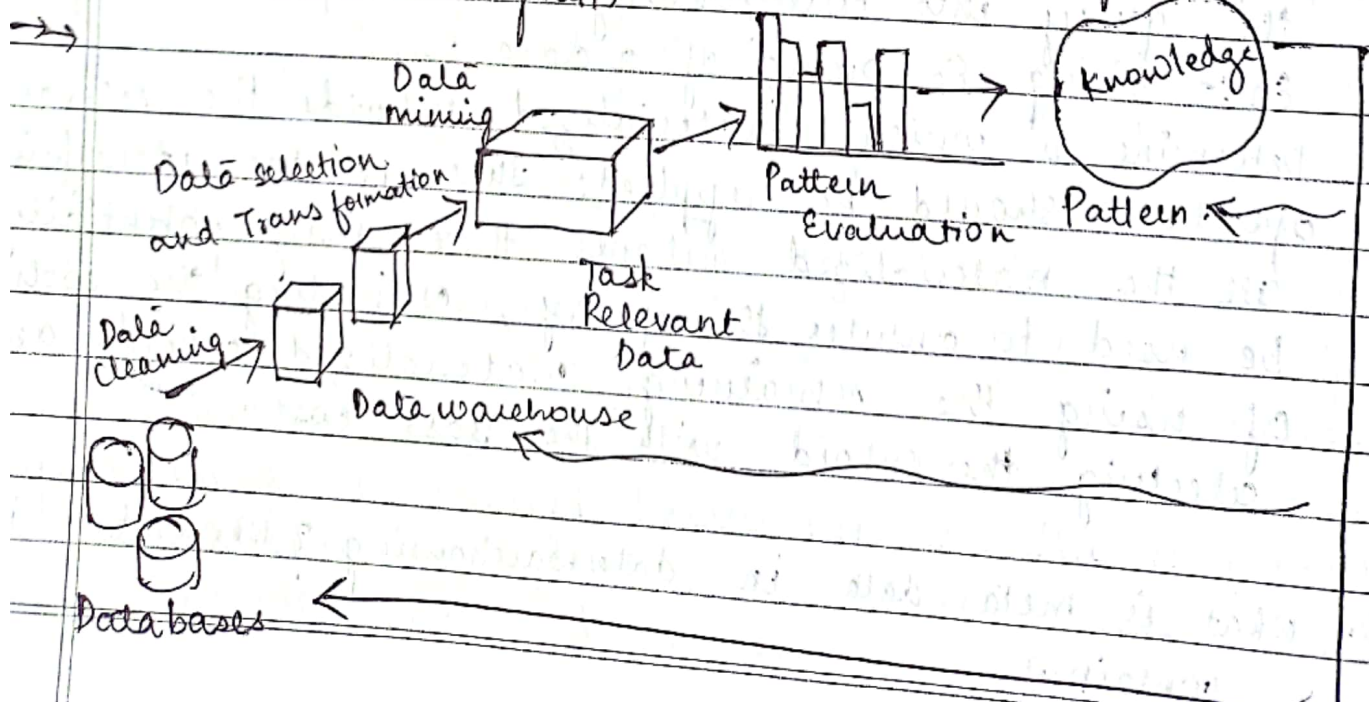 Data
mining
Knowledge
Data selection
and Transformation
Pattern
Evaluation
Pattern
Task
Relevant
Data
Data
cleaning
Data warehouse
Databases